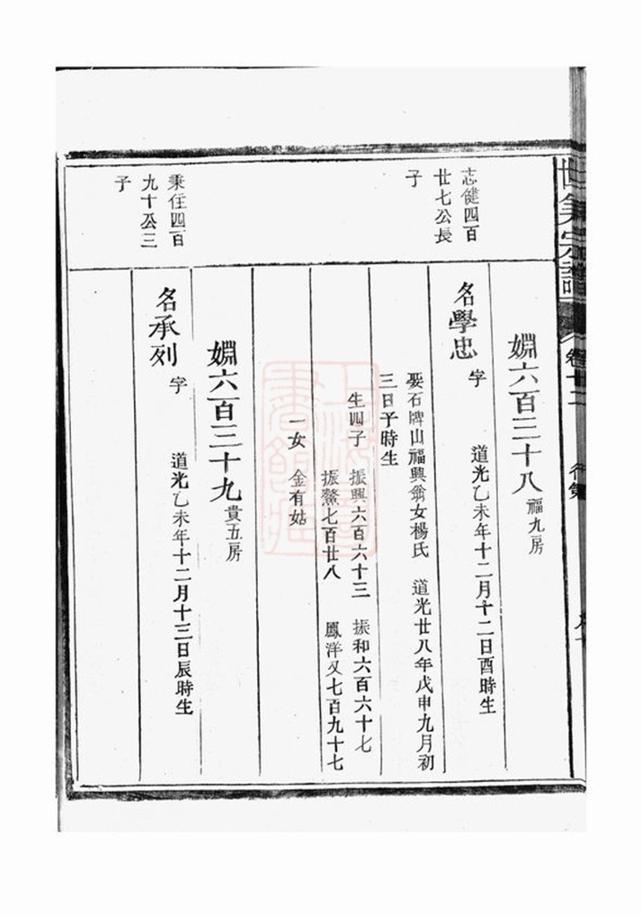 卷十二
行第
嫺六百三十八 福九房
志健四百
廿七公長
子
名學忠 字 道光乙未年十二月十二日酉時生
娶石牌山福興翁女楊氏 道光廿八年戊申九月初
三日子時生
生四子 振興六百六十三 振和六百六十七
振鰲七百廿八 鳳洋又七百九十七
一女 金有姑
嫺六百三十九 貴五房
秉任四百
九十公三
子
名承列 字 道光乙未年十二月十三日辰時生